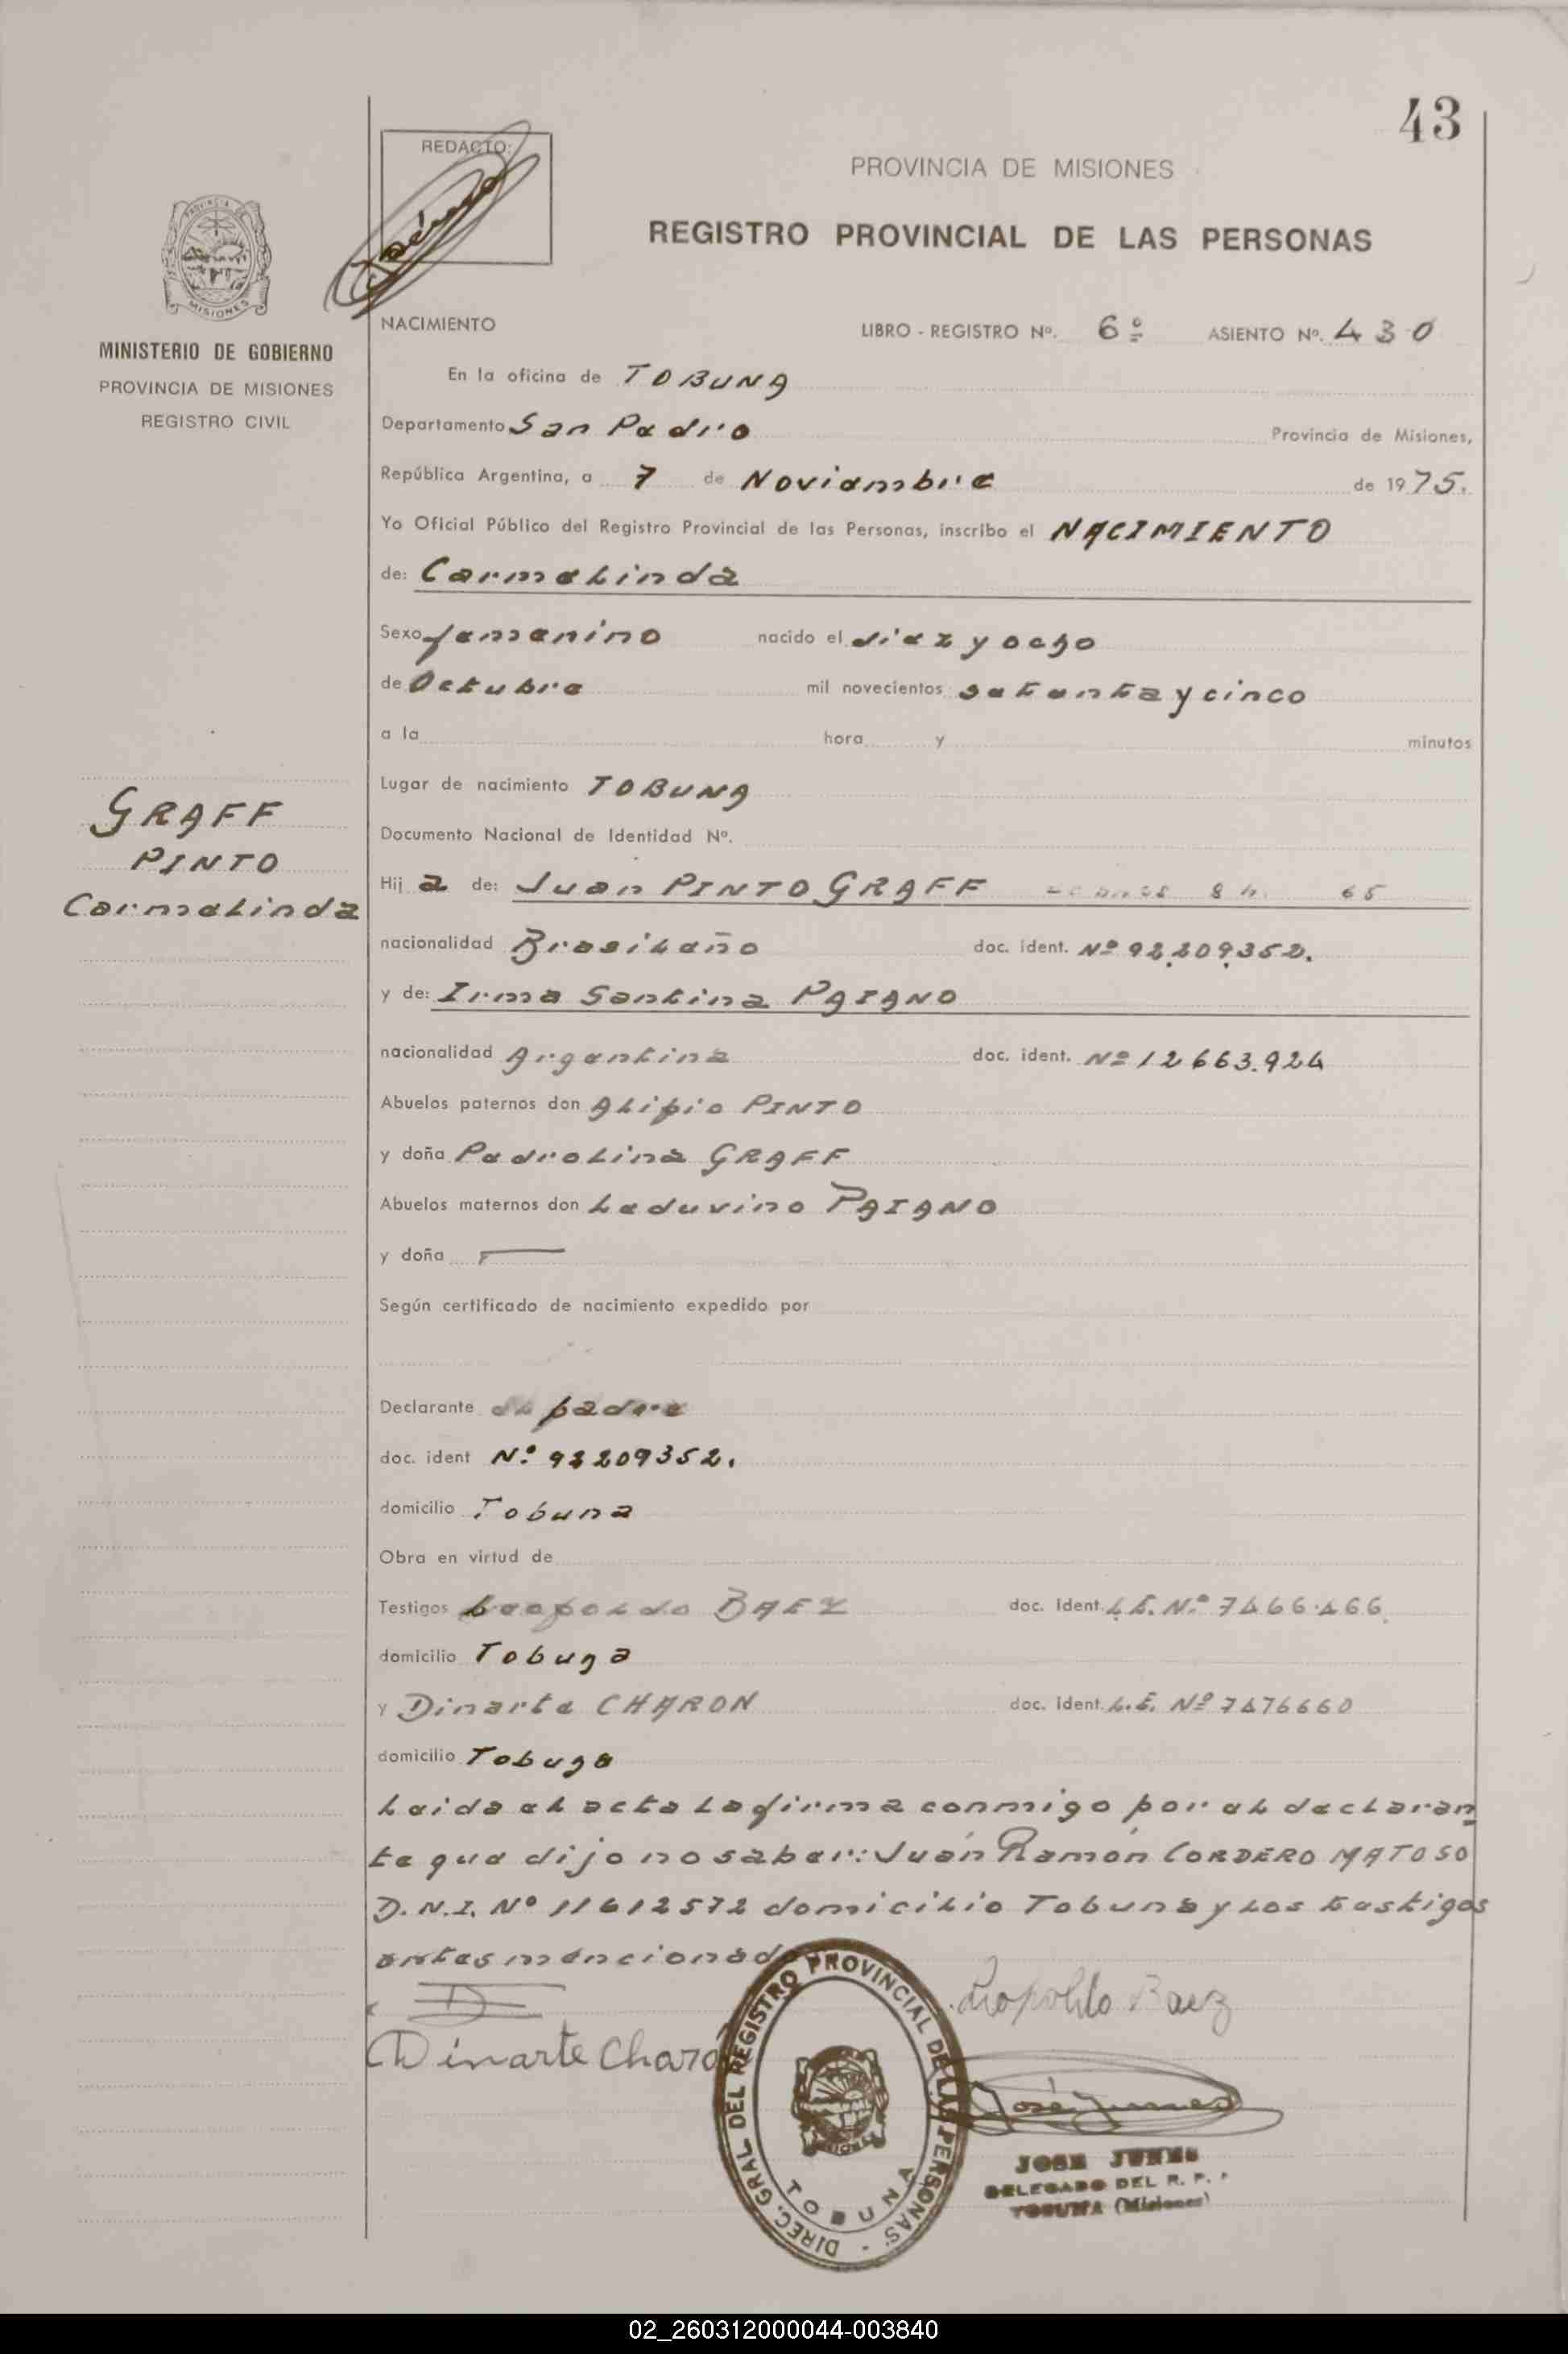 43
REDACTO:
PROVINCIA DE MISIONES
REGISTRO PROVINCIAL DE LAS PERSONAS
MINISTERIO DE GOBIERNO
PROVINCIA DE MISIONES
REGISTRO CIVIL
NACIMIENTO LIBRO - REGISTRO Nº. 6º ASIENTO Nº. 430
En la oficina de TOBUNA
Departamento San Pedro Provincia de Misiones,
República Argentina, a 7 de Noviembre de 1975.
Yo Oficial Público del Registro Provincial de las Personas, inscribo el NACIMIENTO
de: Carmelinda
Sexo femenino nacido el diez y ocho
de Octubre mil novecientos setenta y cinco
a la hora y minutos
Lugar de nacimiento TOBUNA
Documento Nacional de Identidad Nº.
GRAFF
PINTO
Carmelinda
Hij a de: Juan PINTO GRAFF
nacionalidad Brasileño doc. ident. Nº 92.209.352.
y de: Irma Santina PAIANO
nacionalidad Argentina doc. ident. Nº 12663.924
Abuelos paternos don Alipio PINTO
y doña Pedrolina GRAFF
Abuelos maternos don Leduvino PAIANO
y doña
Según certificado de nacimiento expedido por
Declarante el padre
doc. ident Nº 92209352.
domicilio Tobuna
Obra en virtud de
Testigos Leopoldo BAEZ doc. ident. L.E. Nº 7466.466.
domicilio Tobuna
y Dinarte CHARON doc. ident. L.E. Nº 7476660
domicilio Tobuna
Leida el acta la firma conmigo por el declaran
te que dijo no saber: Juan Ramón CORDERO MATOSO
D.N.I. Nº 11612572 domicilio Tobuna y los testigos
antes mencionado
Leopoldo Baez
Dinarte Charo
José Junes
DIREC. GRAL. DEL REGISTRO PROVINCIAL DE LAS PERSONAS -
MISIONES
TOBUNA
JOSE JUNES
DELEGADO DEL R. P.
TOBUNA (Misiones)
02_260312000044-003840